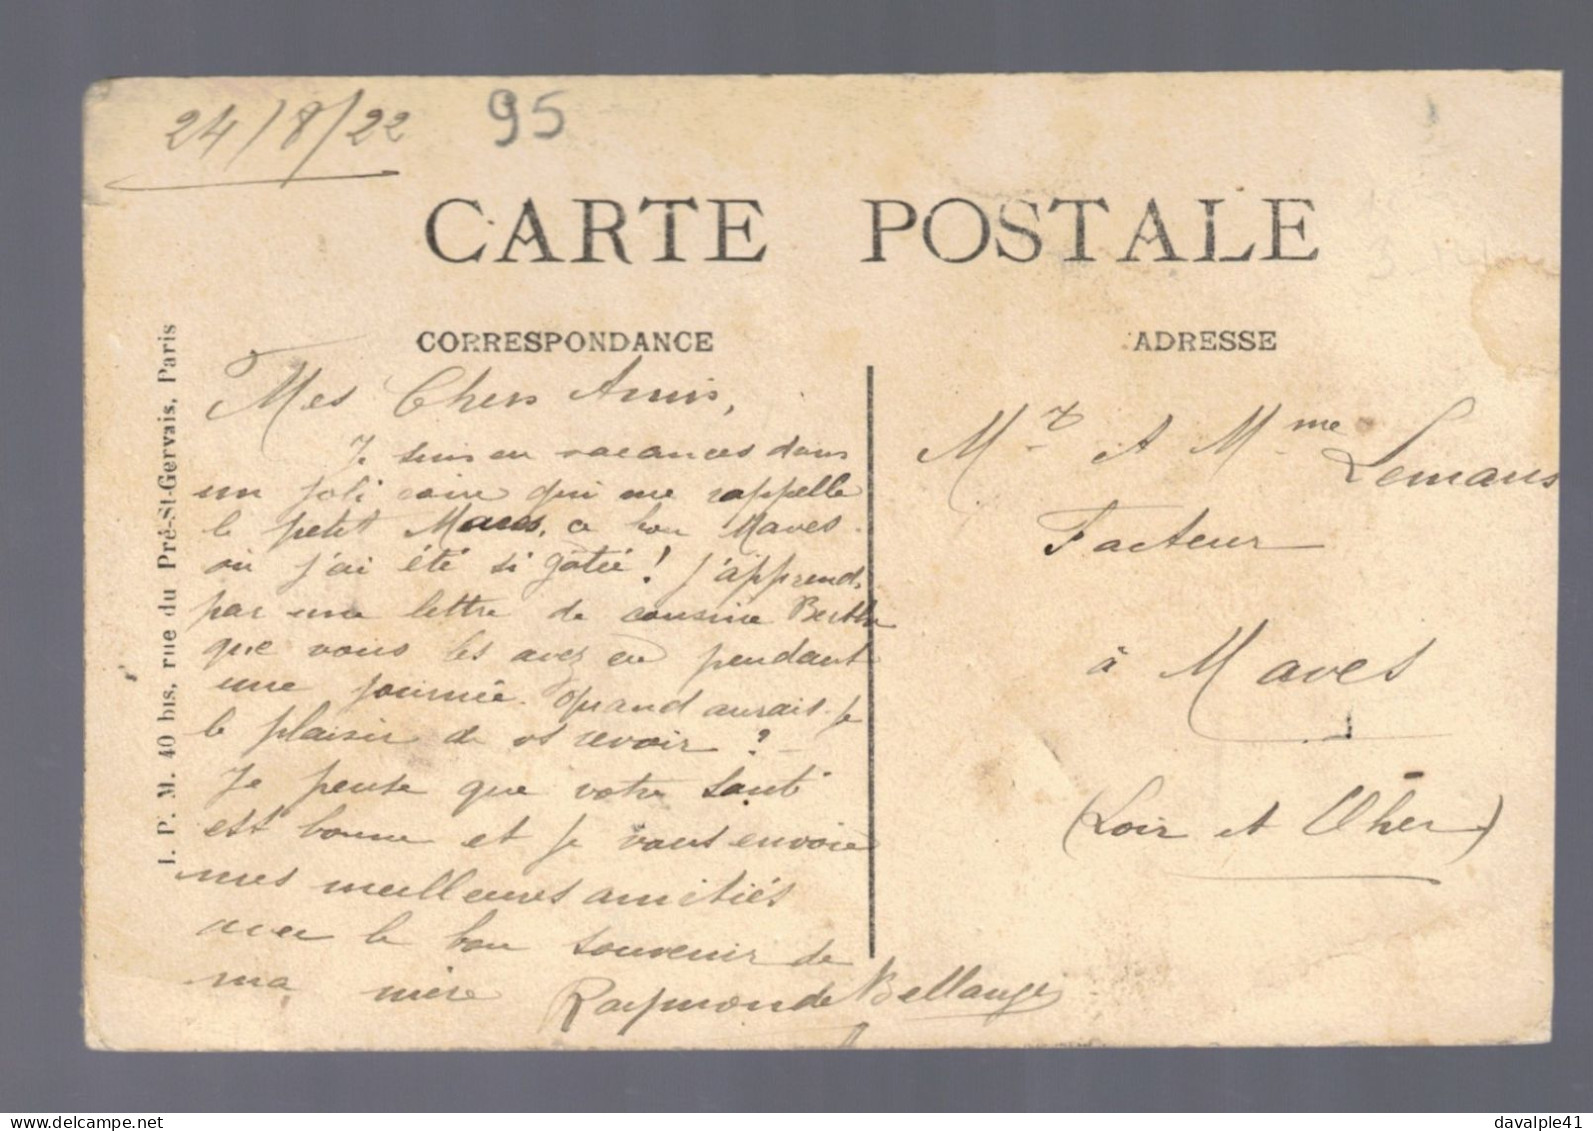 24/8/22
95
CARTE POSTALE
CORRESPONDANCE
ADRESSE
I. P. M. 40 bis, rue du Pré-St-Gervais, Paris
Mes Chers Amis,
Je suis en vacances dans
un joli coin qui me rappelle
le petit Maves, ce bon Maves
où j'ai été si gâtée! J'apprends
par une lettre de cousine Berthe
que vous les avez eu pendant
une journée. Quand aurais-je
le plaisir de vs revoir?
Je pense que votre santé
est bonne et je vous envoie
mes meilleures amitiés
avec le bon souvenir de
ma mère Raymonde Bellanger
Mr et Mme Lemans
Facteur
à Maves
(Loir et Cher)
davalple41
www.delcampe.net